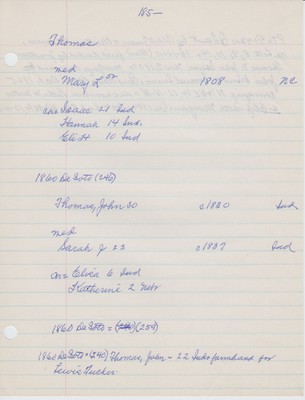 185-
Thomas
med
Mary L or 1808 NC
ch= Isaac 21 Ind
Hannah 14 Ind.
Eli H 10 Ind
1860 De Soto (246)
Thomas, John 30 c1830 Ind
med
Sarah J 23 c1837 Ind
ch= Elvia 6 Ind
Katherine 2 Nebr
1860 De Soto = (254)
1860 De Soto = (240) Thomas, John - 22 Ind farmhand for
Lewis Tucker